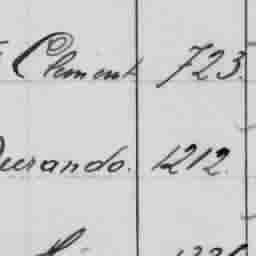 Clement 723.
Durando. 1212.